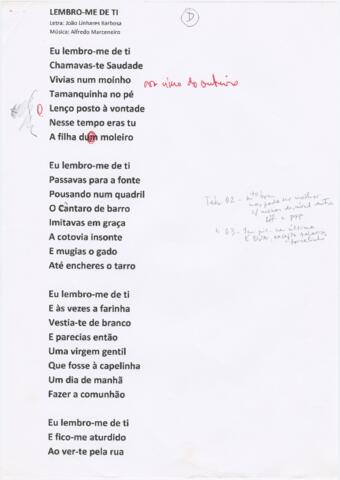 LEMBRO-ME DE TI
D
Letra: João Linhares Barbosa
Música: Alfredo Marceneiro
Eu lembro-me de ti
Chamavas-te Saudade
Vivias num moinho
ao cimo do outeiro
Tamanquinha no pé
Lenço posto à vontade
Nesse tempo eras tu
A filha dum moleiro
Eu lembro-me de ti
Passavas para a fonte
Pousando num quadril
O Cântaro de barro
Imitavas em graça
A cotovia insonte
E mugias o gado
Até encheres o tarro
Take 02 -
03 -
Eu lembro-me de ti
E às vezes a farinha
Vestia-te de branco
E parecias então
Uma virgem gentil
Que fosse à capelinha
Um dia de manhã
Fazer a comunhão
Eu lembro-me de ti
E fico-me aturdido
Ao ver-te pela rua